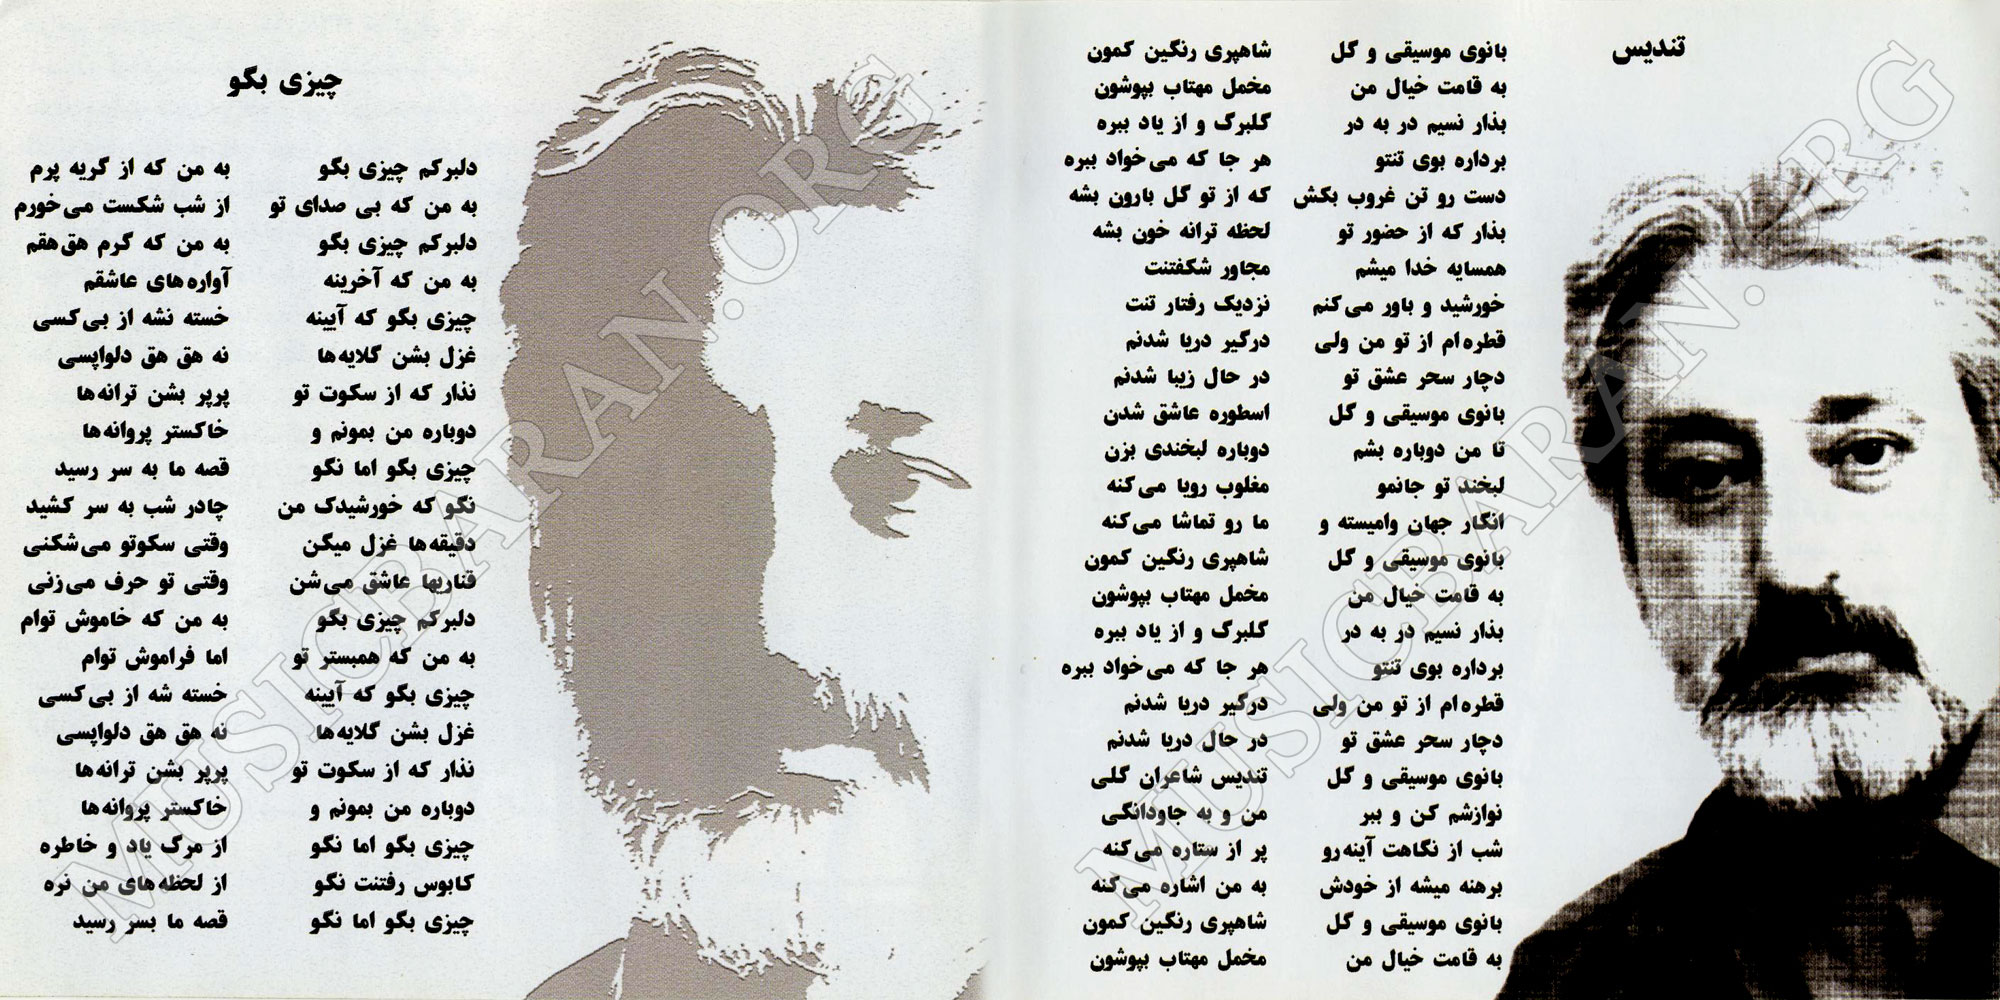 تندیس
بانوی موسیقی و گل شاهپری رنگین کمون
به قامت خیال من مخمل مهتاب بپوشون
بذار نسیم در به در گلبرگ و از یاد ببره
برداره بوی تنتو هر جا که می‌خواد ببره
دست رو تن غروب بکش که از تو گل بارون بشه
بذار که از حضور تو لحظه ترانه خون بشه
همسایه خدا میشم مجاور شکفتنت
خورشید و باور می‌کنم نزدیک رفتار تنت
قطره‌ام از تو من ولی درگیر دریا شدنم
دچار سحر عشق تو در حال زیبا شدنم
بانوی موسیقی و گل اسطوره عاشق شدن
تا من دوباره بشم دوباره لبخندی بزن
لبخند تو جانمو مغلوب رویا می‌کنه
انگار جهان وامیسته و ما رو تماشا می‌کنه
بانوی موسیقی و گل شاهپری رنگین کمون
به قامت خیال من مخمل مهتاب بپوشون
بذار نسیم در به در گلبرگ و از یاد ببره
برداره بوی تنتو هر جا که می‌خواد ببره
قطره‌ام از تو من ولی درگیر دریا شدنم
دچار سحر عشق تو در حال دریا شدنم
بانوی موسیقی و گل تندیس شاعران گلی
نوازشم کن و ببر من و به جاودانگی
شب از نگاهت آینه‌رو پر از ستاره می‌کنه
برهنه میشه از خودش به من اشاره می‌کنه
بانوی موسیقی و گل شاهپری رنگین کمون
به قامت خیال من مخمل مهتاب بپوشون
چیزی بگو
دلبرکم چیزی بگو به من که از گریه پرم
به من که بی صدای تو از شب شکست می‌خورم
دلبرکم چیزی بگو به من که گرم هق‌هقم
به من که آخرینه آواره‌های عاشقم
چیزی بگو که آیینه خسته نشه از بی‌کسی
غزل بشن گلایه‌ها نه هق هق دلواپسی
نذار که از سکوت تو پرپر بشن ترانه‌ها
دوباره من بمونم و خاکستر پروانه‌ها
چیزی بگو اما نگو قصه ما به سر رسید
نگو که خورشیدک من چادر شب به سر کشید
دقیقه‌ها غزل میگن وقتی سکوتو می‌شکنی
قناریها عاشق می‌شن وقتی تو حرف می‌زنی
دلبرکم چیزی بگو به من که خاموش توام
به من که همبستر تو اما فراموش توام
چیزی بگو که آیینه خسته شه از بی‌کسی
غزل بشن گلایه‌ها نه هق هق دلواپسی
نذار که از سکوت تو پرپر بشن ترانه‌ها
دوباره من بمونم و خاکستر پروانه‌ها
چیزی بگو اما نگو از مرگ یاد و خاطره
کابوس رفتنت نگو از لحظه‌های من نره
چیزی بگو اما نگو قصه ما بسر رسید
MUSICBARAN.ORG
MUSICBARAN.ORG